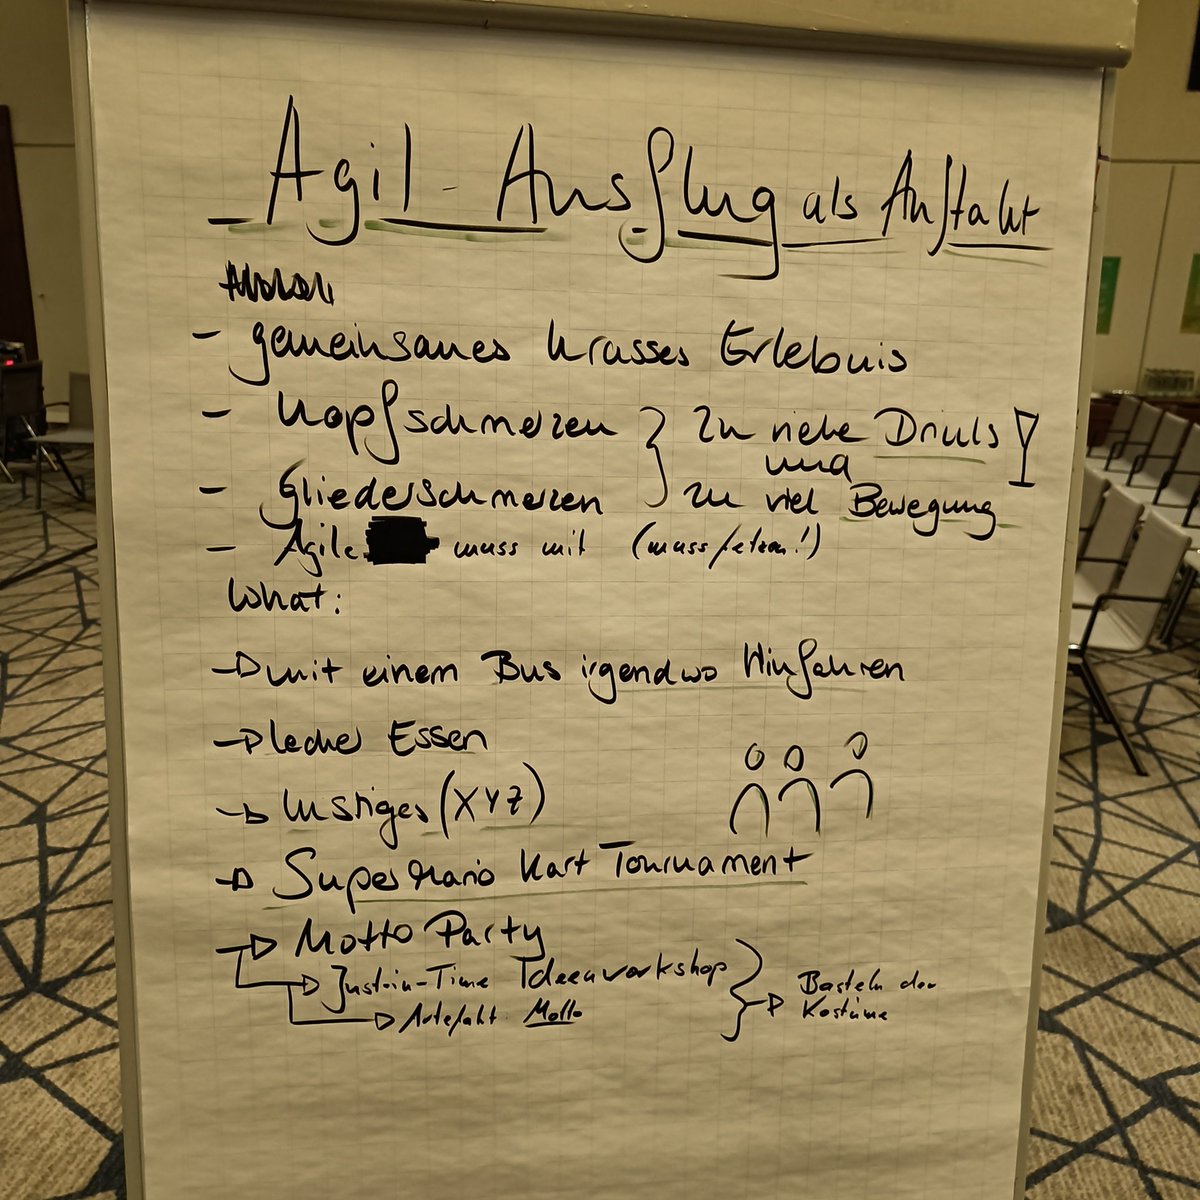 Agil-Ausflug als Auftakt
- gemeinsames krasses Erlebnis
- Kopfschmerzen } zu viele Drinks
und
- Gliederschmerzen } zu viel Bewegung
- Agile muss mit (muss fetzen!)
What:
→ mit einem Bus irgendwo hinfahren
→ lecker Essen
→ lustiges (XYZ)
→ Super Mario Kart Tournament
→ Motto Party
→ Just-in-Time Ideenworkshop
→ Artefakt: Motto
} → Basteln der
Kostüme